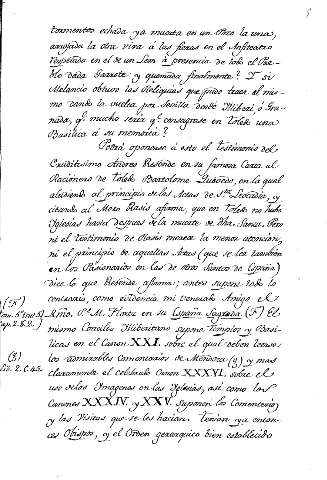 tormentos echada ya muerta en un Pozo la una,
arrojada la otra viva á las fieras en el Anfiteatro
despedida en el de un Leon á presencia de todo el Pue-
blo dada Garrote y quemada finalmente? Y si
Melancio obtuvo las Reliquias que pudo traer él mis-
mo dando la vuelta por Sevilla desde Iliberi, ó Gra-
nada, q.e mucho sería q.e consagrase en Toledo una
Basilica á su memoria?
Podrá oponerse á esto el testimonio del
Eruditisimo Andres Resende en su famosa Carta al
Racionero de Toledo Bartolome Quevedo, en la qual
aludiendo al principio de las Actas de S.ta Leocadia, y
citando al Moro Rasis afirma, que en Toledo no hubo
Iglesias hasta despues de la muerte de dha. Santa. Pero
ni el Testimonio de Rasis merece la menor atencion,
ni el principio de aquellas Actas (que se lee tambien
en los Pasionarios en las de otros Santos de España)
dice lo que Resende afirma; antes supone todo lo
contrario, como evidencia mi venerado Amigo el
Rmo. P. M. Florez en su España Sagrada (F) El
mismo Concilio Iliberitano supone Templos y Basi-
licas en el Canon XXI. sobre el qual deben leerse
los admirables Comentarios de Mendoza (g) y mas
claramente el celebrado Canon XXXVI. sobre el
uso de las Imagenes en las Iglesias, asi como los
Canones XXXIV. y XXV. suponen los Cementerios
y las Visitas que se les hacian. Tenian ya enton-
ces Obispos, y el Orden gerarquico bien establecido
(F)
cap. 2. §. 2.
(g)
Lib. 2. C. 45.